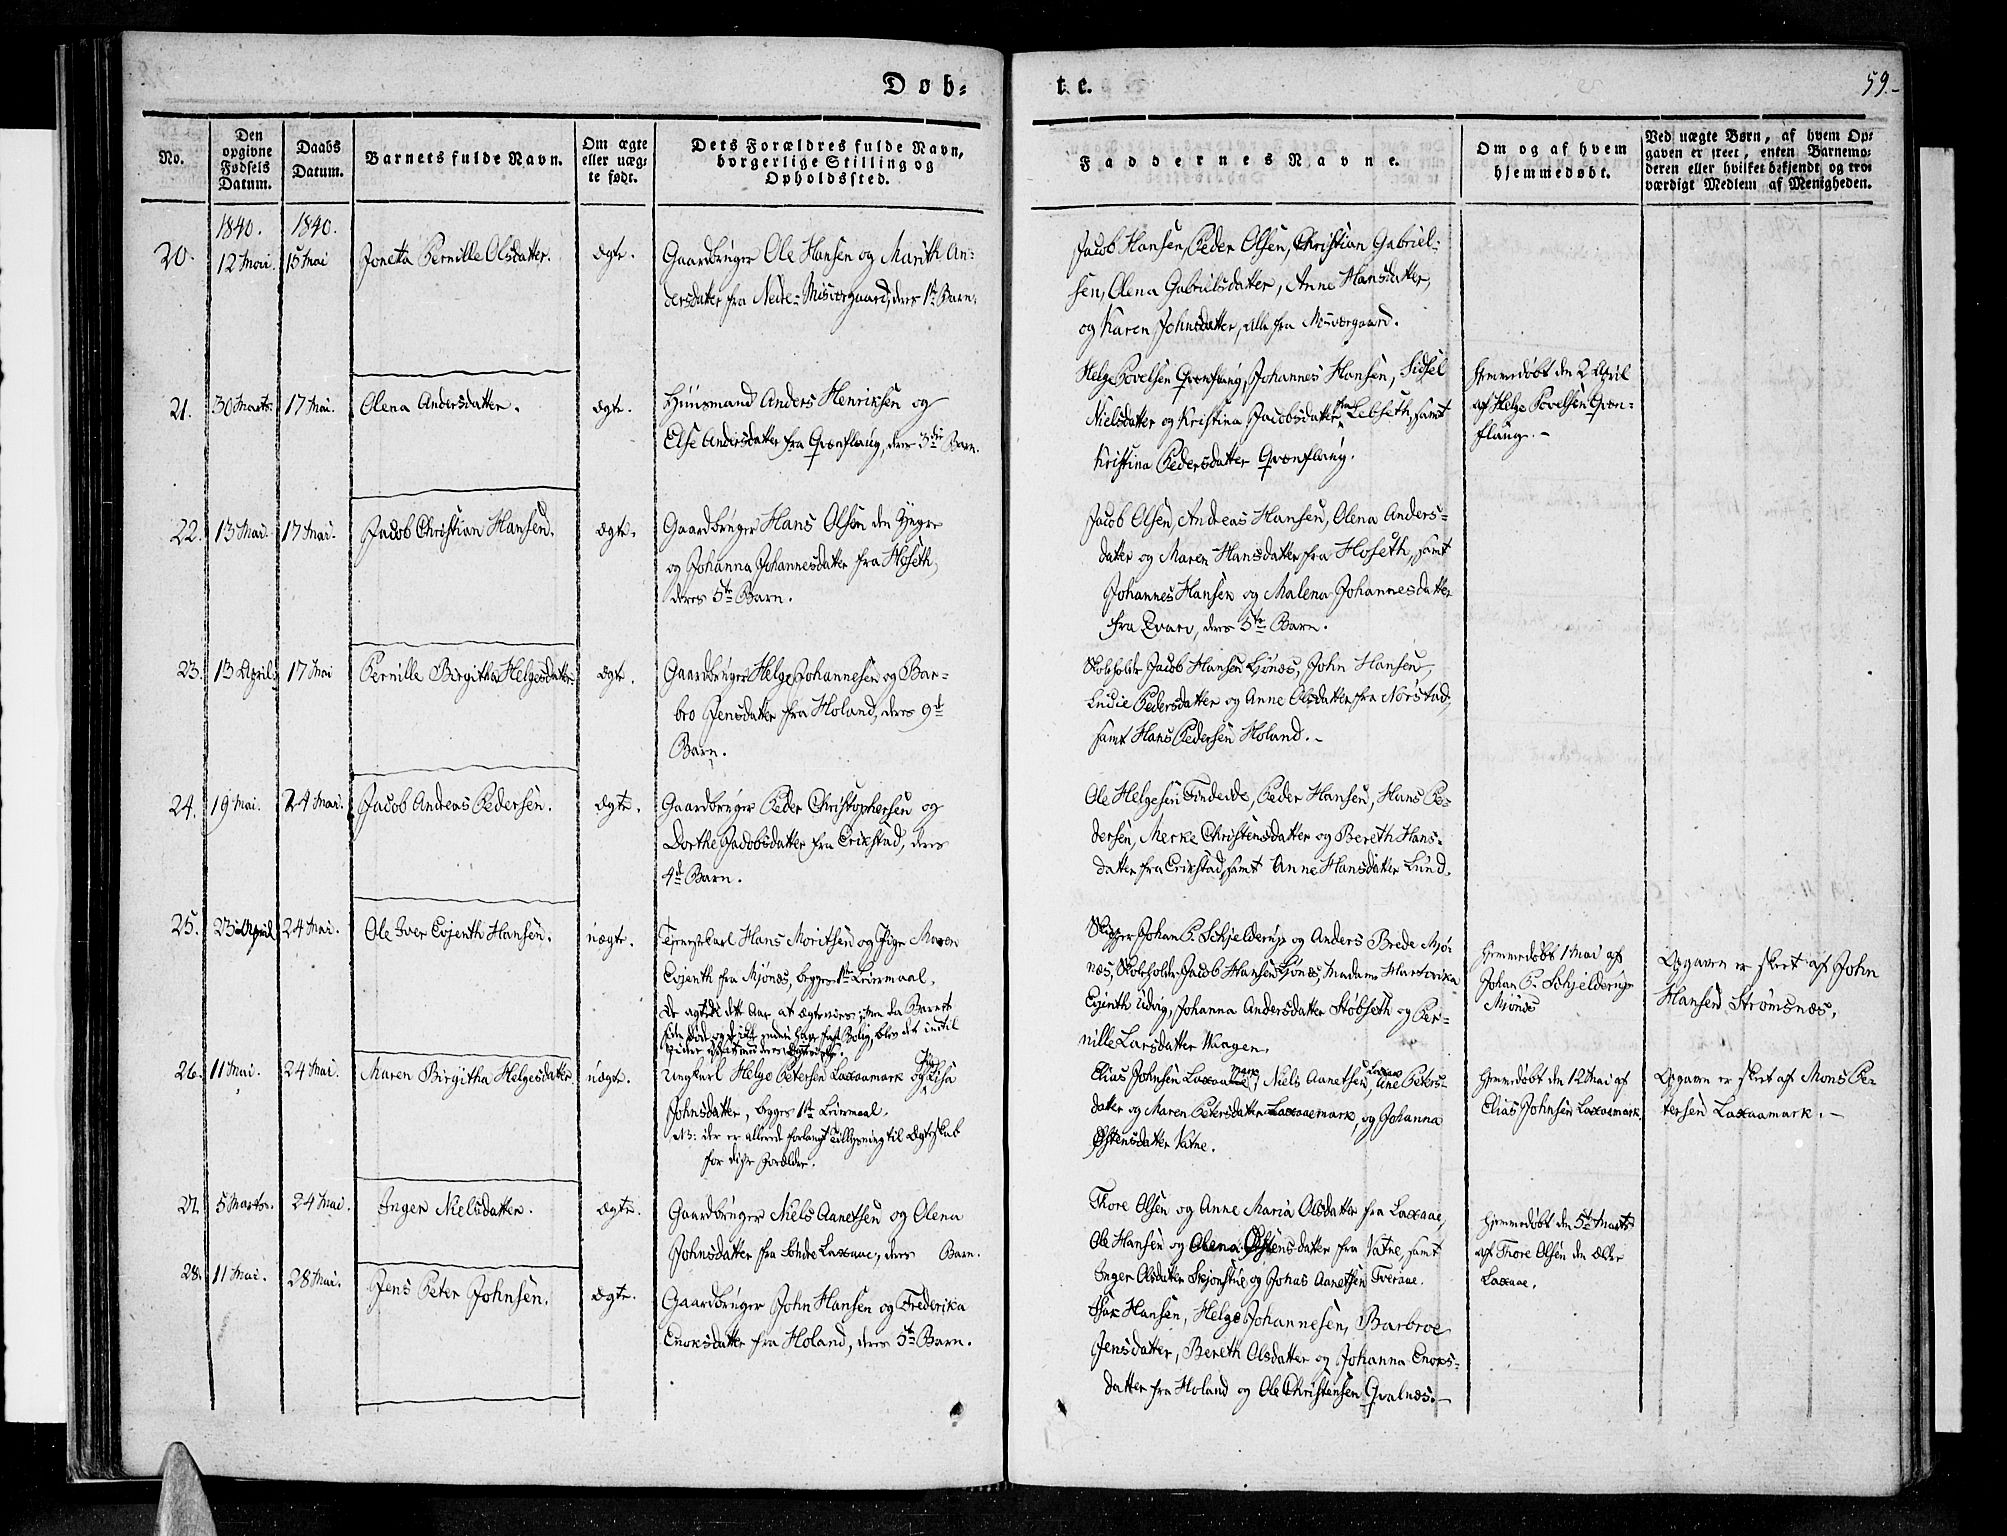 Døb-
te.
59.-
No.
Den opgivne Fødsels Datum.
Daabs Datum.
Barnets fulde Navn.
Om ægte eller uægte født.
Dets Forældres fulde Navn, borgerlige Stilling og Opholdssted.
Faddernes Navne.
Om og af hvem hjemmedøbt.
Ved uægte Børn, af hvem Opgaven er skeet, enten Barnemoderen eller hvilket bekjendt og troværdigt Medlem af Menigheden.
1840. 1840.
20. 12 Mai. 15 Mai Joneta Pernille Olsdatter. ægte.
Gaardbruger Ole Hansen og Marith An-
dersdatter fra Nedre-Misværgaard, deres 1te Barn.
Jacob Hansen, Peder Olsen, Christian Gabriel-
sen, Olena Gabrielsdatter, Anne Hansdatter,
og Karen Johnsdatter, alle fra Misværgaard.
21. 30 Marts. 17 Mai. Olena Andersdatter. ægte.
Huusmand Anders Henriksen og
Else Andersdatter fra Qvænflaug, deres 3die Barn.
Helge Povelsen Qvænflaug, Johannes Hansen, Sidsel
Nielsdatter og Kristina Jacobsdatter fra Lebseth, samt
Kristina Pedersdatter Qvænflaug.
Hjemmedøbt den 2 April
af Helge Povelsen Qvæn-
flaug.-
22. 13 Mai. 17 Mai. Jacob Christian Hansen. ægte.
Gaardbruger Hans Olsen den Yngre
og Johanna Johannesdatter fra Hoseth,
deres 5te Barn.
Jacob Olsen, Andreas Hansen, Olena Anders-
datter og Maren Hansdatter fra Hoseth, samt
Johannes Hansen og Malena Johannesdatter
fra Qvarv, deres 5te Barn.
23. 13 April. 17 Mai Pernille Birgitha Helgesdatter. ægte.
Gaardbruger Helge Johannesen og Bar-
bro Jensdatter fra Holand, deres 9de
Barn.
Skoleholder Jacob Hansen Lønæs, John Hansen,
Lucie Pedersdatter og Anne Olsdatter fra Norstad,
samt Hans Pedersen Holand.-
24. 19 Mai. 24 Mai. Jacob Andreas Pedersen. ægte.
Gaardbruger Peder Christophersen og
Dorthe Jacobsdatter fra Erikstad, deres
4de Barn.
Ole Helgesen Findeide, Peder Hansen, Hans Pe-
dersen, Merke Christensdatter og Bereth Hans-
datter fra Erikstad, samt Anne Hansdatter Lund.
25. 23 April 24 Mai. Ole Iver Ejenth Hansen. uægte.
Tjenestekarl Hans Moritsen og Pige Maren
Ejenth fra Mjønes, begges 1te Leiermaal.
De agtede dette Aar, at ægtevies; men da Barnet
Skipper Johan P. Schjelderup og Anders Brede Mjø-
næs, Skoleholder Jacob Hansen Lønæs, Madame
Ejenth Udvig, Johanna Andersdatter Støbseth og Per-
nille Larsdatter Waagen.
Hjemmedøbt 1 Mai af
Johan P. Schjelderup
Mjønæs
Opgaven er skeet af John
Hansen Strømsnæs.
26. 11 Mai. 24 Mai. Maren Birgitha Helgesdatter uægte.
Ungkarl Helge Petersen Laxaamark og Pige Elisa
Johnsdatter, begges 1te Leiermaal.
NB: der er allerede forlangt Tillysning til Ægteskab
for disse Forældre.
Elias Johnsen Laxaamark, Niels Aanetsen Laxaae, Ane Peters-
datter og Maren Petersdatter Laxaaemark, og Johanna
Østensdatter Vatne.
Hjemmedøbt den 12 Mai af
Elias Johnsen Laxaamark.
Opgaven er skeet af Mons Pe-
tersen Laxaamark.-
27. 5 Marts. 24 Mai. Inger Nielsdatter. ægte.
Gaardbruger Niels Aanetsen og Olena
Johnsdatter fra Søndre Laxaae, deres Barn.
Thore Olsen og Anne Maria Olsdatter fra Laxaae,
Ole Hansen og Olena Østensdatter fra Vatne, samt
Inger Olsdatter Skjønstue og Johas Aanetsen Tveraae.
Hjemmedøbt den 5te Marts
af Thore Olsen den ældre
Laxaae.
28. 11 Mai. 28 Mai. Jens Peter Johnsen. ægte.
Gaardbruger John Hansen og Frederika
Enoksdatter fra Holand, deres 5te Barn.
Isak Hansen, Helge Johannesen, Barbroe
Jensdatter, Bereth Olsdatter og Johanna Enoks-
datter fra Holand og Ole Christensen Qvalnæs.-